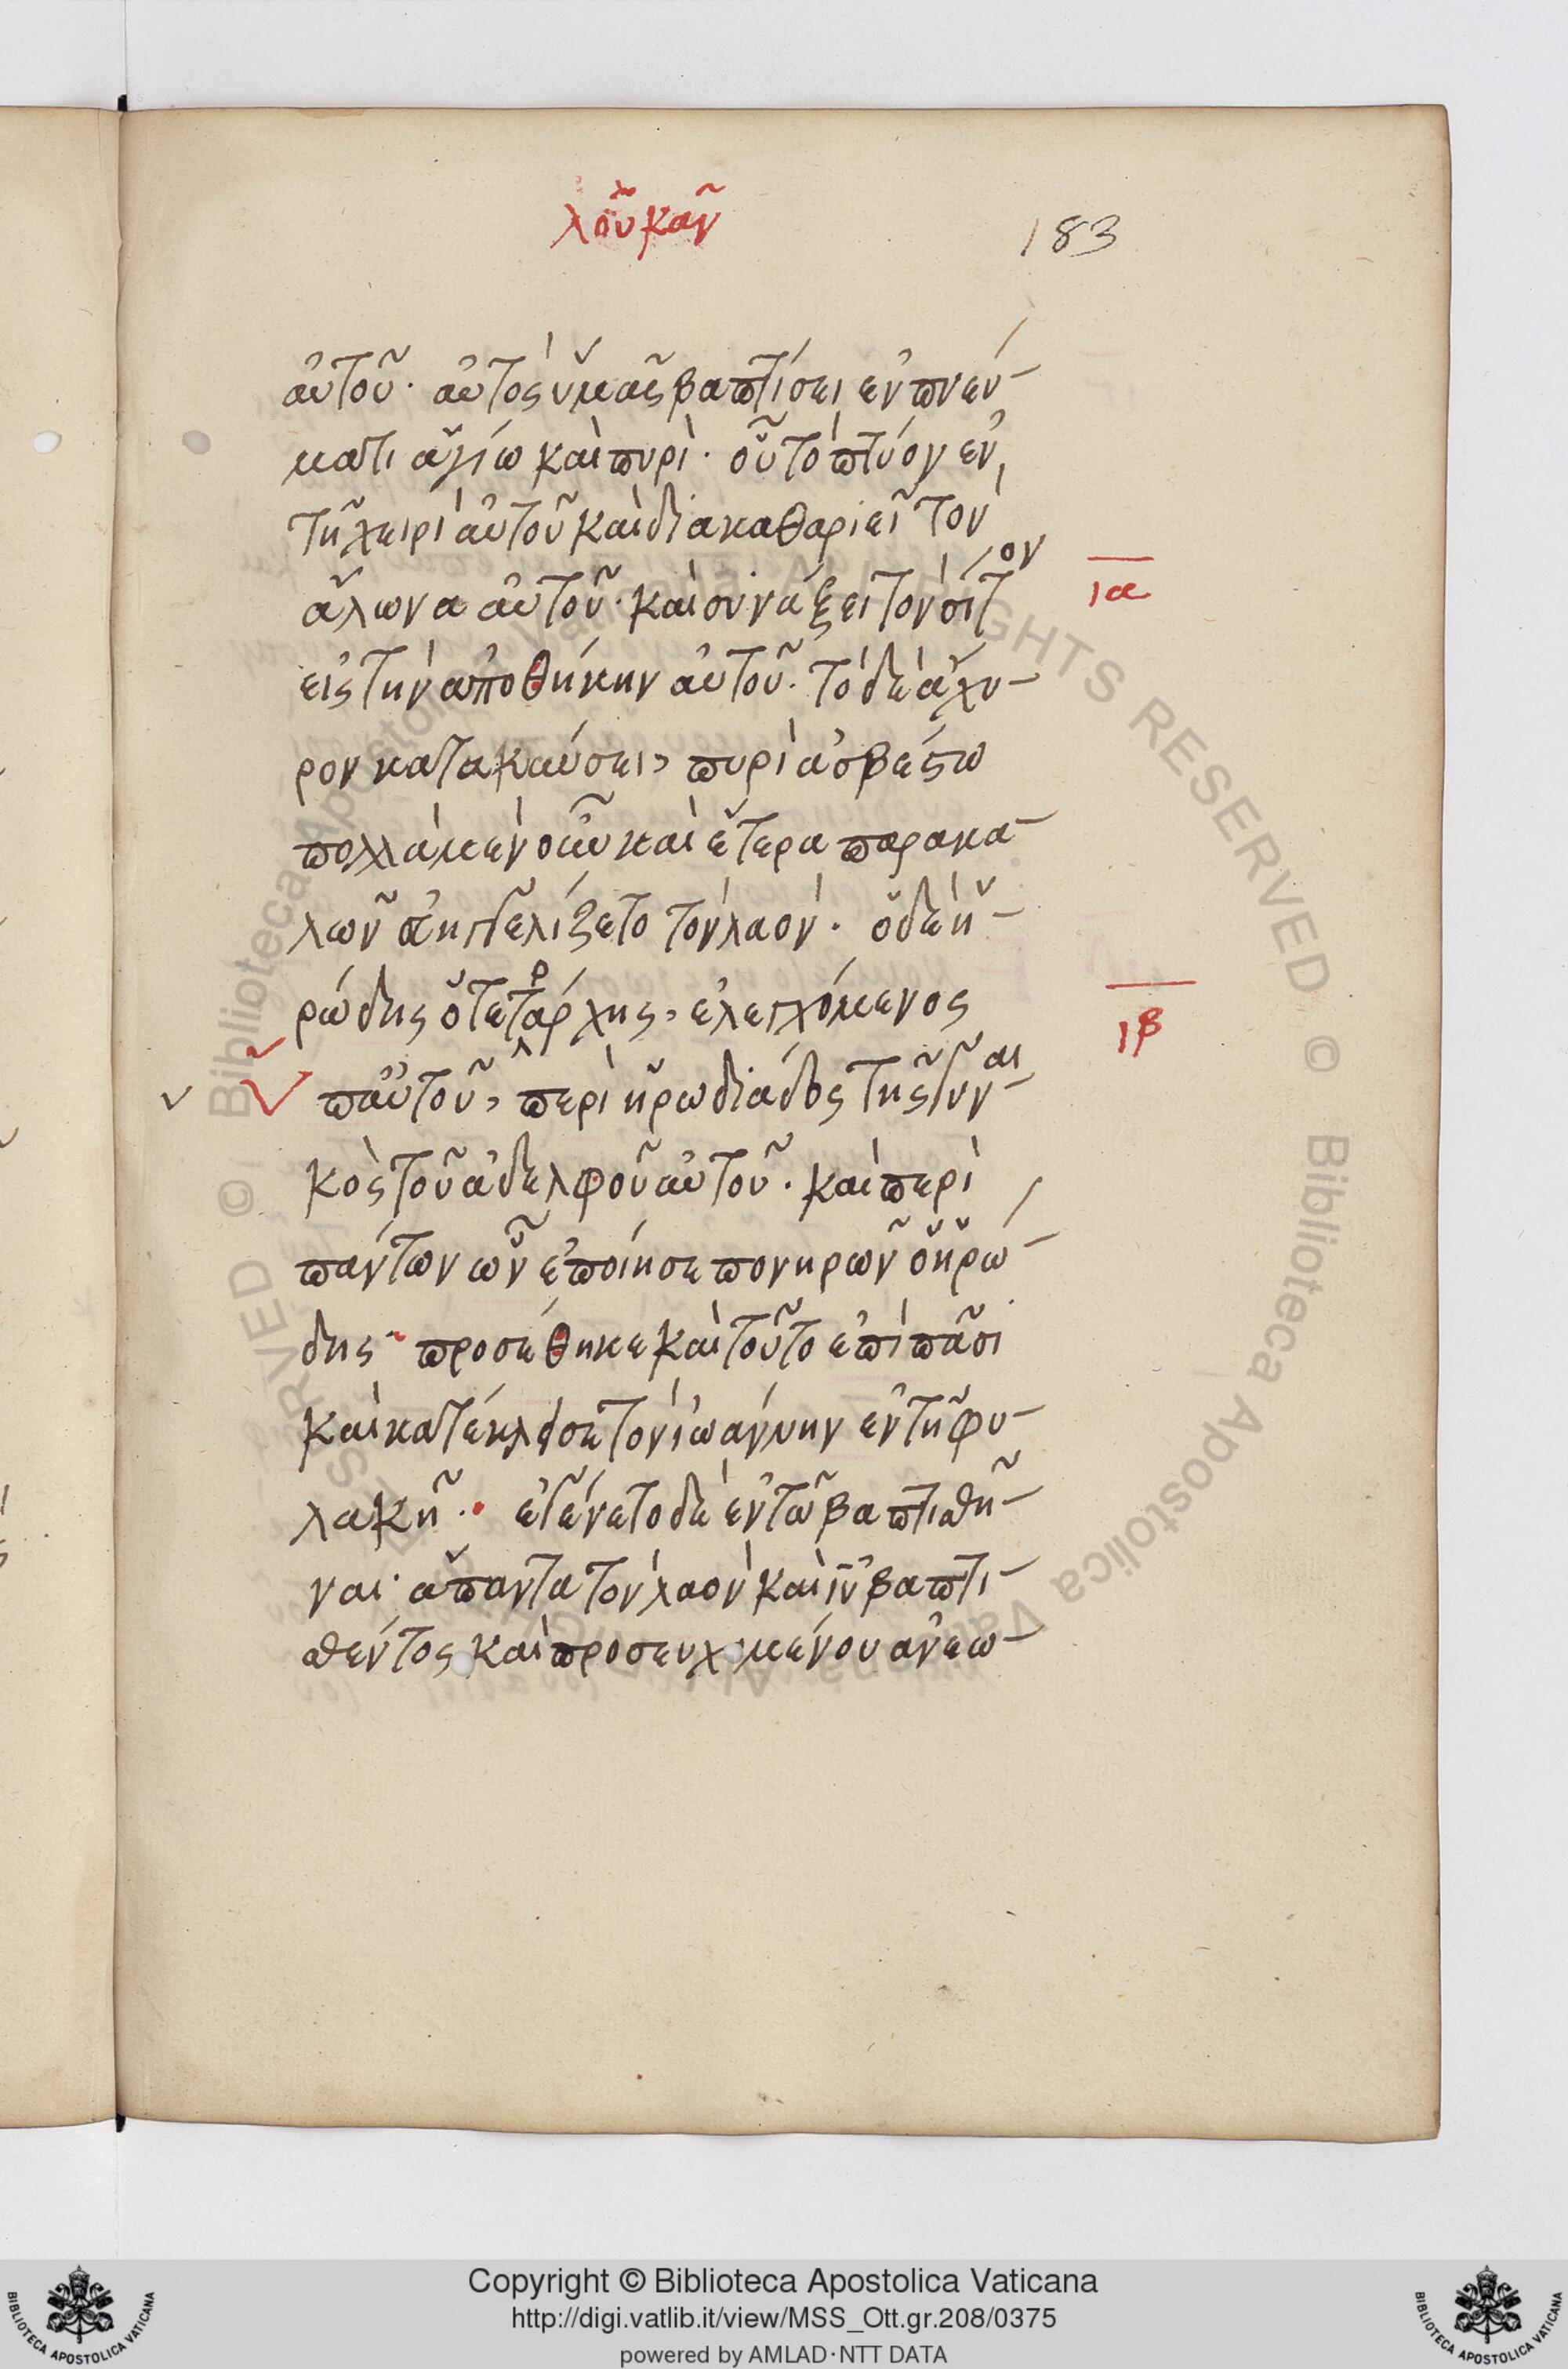 λουκᾶν
183
αὐτοῦ· αὐτὸς ὑμᾶς βαπτίσει ἐν πνεύ-
ματι ἁγίω καὶ πυρὶ· οὗ τὸ πτύον ἐν
τῆ χειρὶ αὐτοῦ καὶ διακαθαριεῖ τὸν
ἅλωνα αὐτοῦ· καὶ συνάξει τὸν σίτον
ια
εἰς τὴν ἀποθήκην αὐτοῦ· τὸ δὲ ἄχυ-
ρον κατακαύσει, πυρὶ ἀσβέστω
πολλὰ μὲν οὖν καὶ ἕτερα παρακα-
λῶν εὐηγγελίζετο τὸν λαὸν· ὁ δὲ ἡ-
ρώδης ὁ τετράρχης, ἐλεγχόμενος
ιβ
ὑπ' αὐτοῦ, περὶ ἡρωδιάδος τῆς γυναι-
κὸς τοῦ ἀδελφοῦ αὐτοῦ· καὶ περὶ
πάντων ὧν ἐποίησε πονηρῶν ὁ ἡρώ-
δης· προσέθηκε καὶ τοῦτο ἐπὶ πᾶσι
καὶ κατέκλεισε τὸν ἰωάννην ἐν τῆ φυ-
λακῆ·· ἐγένετο δὲ ἐν τῶ βαπτισθῆ-
ναι ἅπαντα τὸν λαὸν καὶ ιυ βαπτι-
σθέντος καὶ προσευχομένου ἀνεω-
Copyright © Biblioteca Apostolica Vaticana
http://digi.vatlib.it/view/MSS_Ott.gr.208/0375
powered by AMLAD·NTT DATA
BIBLIOTECA APOSTOLICA VATICANA
BIBLIOTECA APOSTOLICA VATICANA